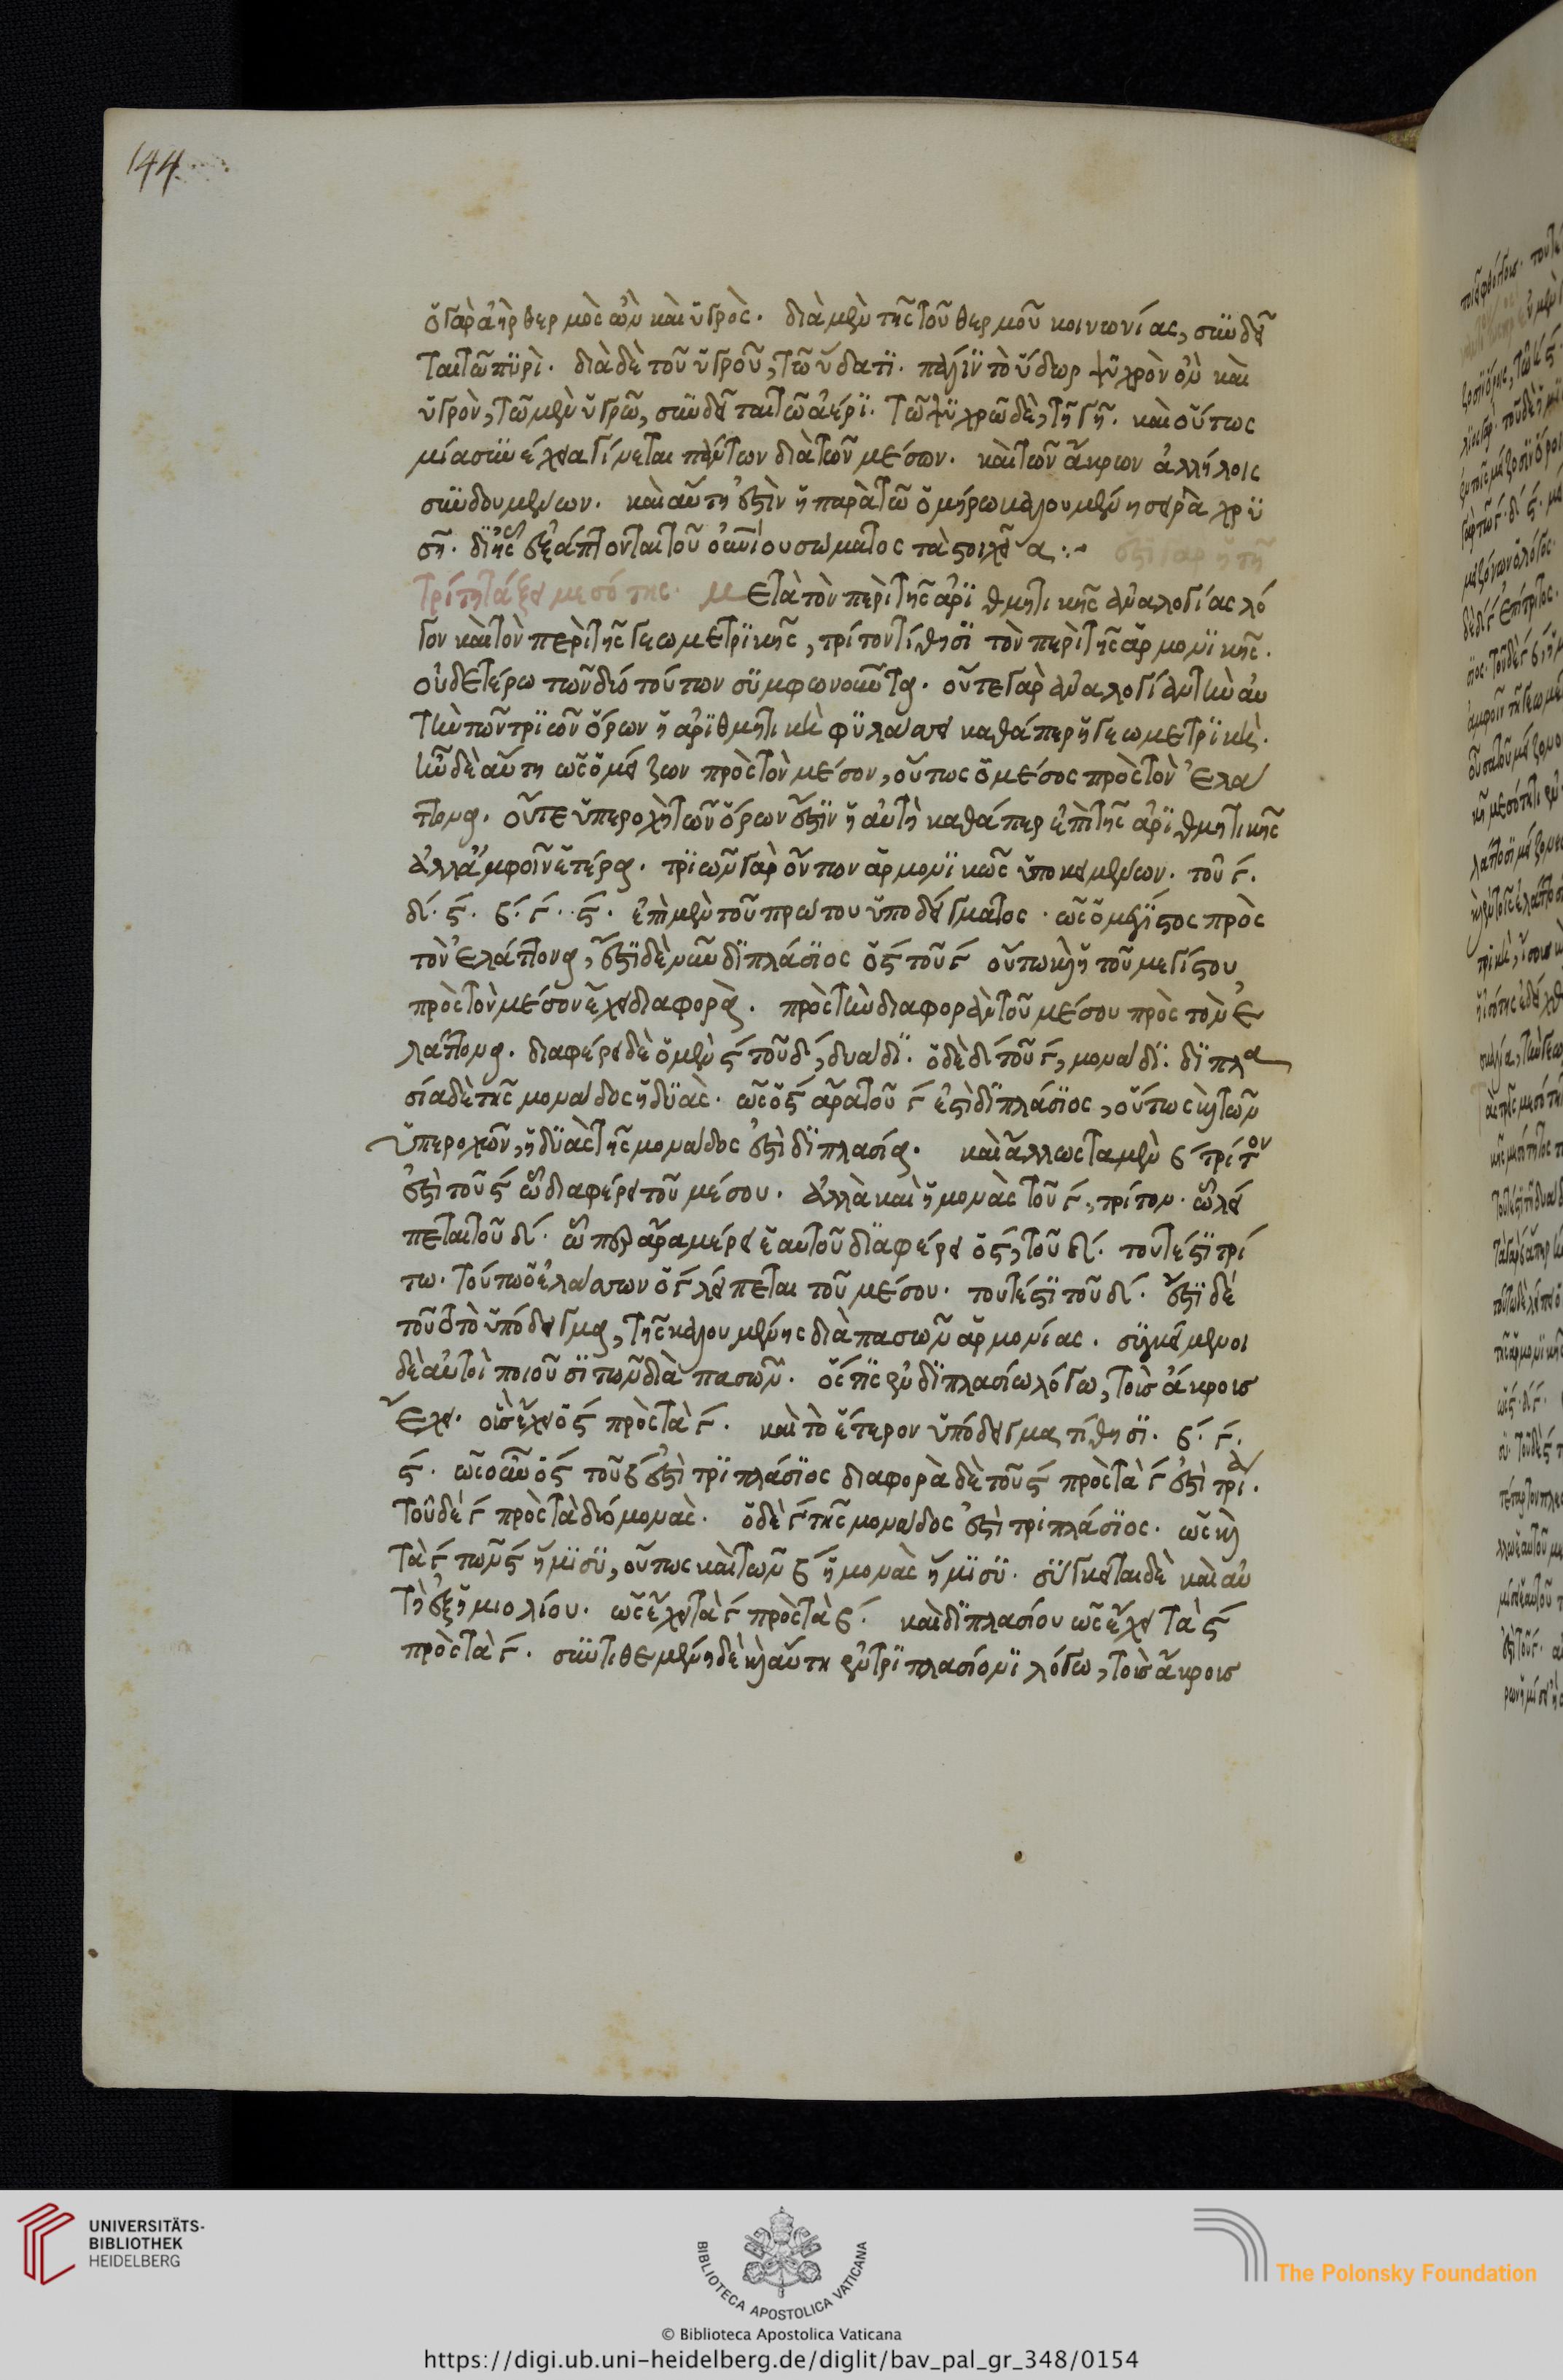 144
ὁ γὰρ ἀὴρ θερμὸς ὢν καὶ ὑγρὸς. διὰ μὲν τῆς τοῦ θερμοῦ κοινωνίας, συνδεῖ
ται τῶ πυρὶ. διὰ δὲ τοῦ ὑγροῦ, τῶ ὕδατι. πάλιν τὸ ὕδωρ ψυχρὸν ὂν καὶ
ὑγρὸν, τῶ μὲν ὑγρῶ, συνδεῖται τῶ ἀέρι. τῶ ψυχρῶ δὲ, τῆ γῆ. καὶ οὕτως
μία συνέχεια γίνεται πάντων διὰ τῶν μέσων. καὶ τῶν ἄκρων ἀλλήλοις
συνδουμένων. καὶ αὕτη ἐστὶν ἡ παρὰ τῶ ὁμήρω καλουμένη σειρὰ χρυ
σῆ. δι' ἧς ἐξάπτονται τοῦ οὐνίου σώματος τὰ στοιχεῖα :~ ἔστι γὰρ ἡ τῆ
τρίτη τάξει μεσότης. Μετὰ τὸν περὶ τῆς ἀριθμητικῆς ἀναλογίας λό
γον καὶ τὸν περὶ τῆς γεωμετρικῆς, τρίτον τίθησι τὸν περὶ τῆς ἁρμονικῆς.
οὐδετέρω τῶν δύο τούτων συμφωνοῦντα. οὔτε γὰρ ἀναλογίαν τὴν αὐ
τὴν τῶν τριῶν ὅρων ἡ ἀριθμητικὴ φυλάττει καθάπερ ἡ γεωμετρικὴ.
ἦν δὲ αὕτη ὡς ὁ μείζων πρὸς τὸν μέσον, οὕτως ὁ μέσος πρὸς τὸν ἐλάτ
τονα. οὔτε ὑπεροχὴ τῶν ὅρων ἐστὶν ἡ αὐτὴ καθάπερ ἐπὶ τῆς ἀριθμητικῆς
ἀλλ' ἀμφοῖν ἑτέρα. τριῶν γὰρ ὄντων ἁρμονικῶς ὑποκειμένων. τοῦ γ.
δ. ς. β. γ. ς. ἐπὶ μὲν τοῦ πρώτου ὑποδείγματος. ὡς ὁ μέγιστος πρὸς
τὸν ἐλάττονα, ἔστι δὲ νῦν διπλάσιος ὁ ς τοῦ γ οὕτω καὶ ἡ τοῦ μεγίστου
πρὸς τὸν μέσον ἔχει διαφορὰ. πρὸς τὴν διαφορὰν τοῦ μέσου πρὸς τὸν ἐ
λάττονα. διαφέρει δὲ ὁ μὲν ς τοῦ δ, δυάδι. ὁ δὲ δ τοῦ γ, μονάδι. διπλα
σία δὲ τῆς μονάδος ἡ δυὰς. ὡς ὁ ς ἄρα τοῦ γ ἐστὶ διπλάσιος, οὕτως καὶ τῶν
ὑπεροχῶν, ἡ δυὰς τῆς μονάδος ἐστὶ διπλασία. καὶ ἄλλως τὰ μὲν β τρίτον
ἐστὶ τοῦ ς ὧ διαφέρει τοῦ μέσου. ἀλλὰ καὶ ἡ μονὰς τοῦ γ, τρίτον. ὧ λεί
πεται τοῦ δ. ὧ περ ἄρα μέρει ἑαυτοῦ διαφέρει ὁ ς, τοῦ δ. τουτέστι τρί
τω. τούτω ὁ ἐλάττων ὁ γ λείπεται τοῦ μέσου. τουτέστι τοῦ δ. ἔστι δὲ
τοῦτο τὸ ὑπόδειγμα, τῆς καλουμένης διὰ πασῶν ἁρμονίας. συγκείμενοι
δὲ αὐτοὶ ποιοῦσι τῶν διὰ πασῶν. ὅστις ἐν διπλασίω λόγω, τοὺς ἄκροις
ἔχει. οἷς ἔχει ὁ ς πρὸς τὰ γ. καὶ τὸ ἕτερον ὑπόδειγμα τίθησι. β. γ.
ς. ὡς οὖν ὁ ς τοῦ β ἐστὶ τριπλάσιος διαφορὰ δὲ τοῦ ς πρὸς τὰ γ ἐστὶ τριὰ.
τοῦ δὲ γ πρὸς τὰ δύο μονὰς. ὁ δὲ γ τῆς μονάδος ἐστὶ τριπλάσιος. ὡς καὶ
τὰ γ τῶν ς ἥμισυ, οὕτως καὶ τῶν β ἡ μονὰς ἥμισυ. σύγκειται δὲ καὶ αὐ
τὴ ἐξ ἡμιολίου. ὡς ἔχει τὰ γ πρὸς τὰ β. καὶ διπλασίου ὡς ἔχει τὰ ς
πρὸς τὰ γ. συντιθεμένη δὲ καὶ αὕτη ἐν τριπλασίονι λόγω, τοὺς ἄκροις
UNIVERSITÄTS-
BIBLIOTHEK
HEIDELBERG
BIBLIOTECA APOSTOLICA VATICANA
The Polonsky Foundation
© Biblioteca Apostolica Vaticana
https://digi.ub.uni-heidelberg.de/diglit/bav_pal_gr_348/0154